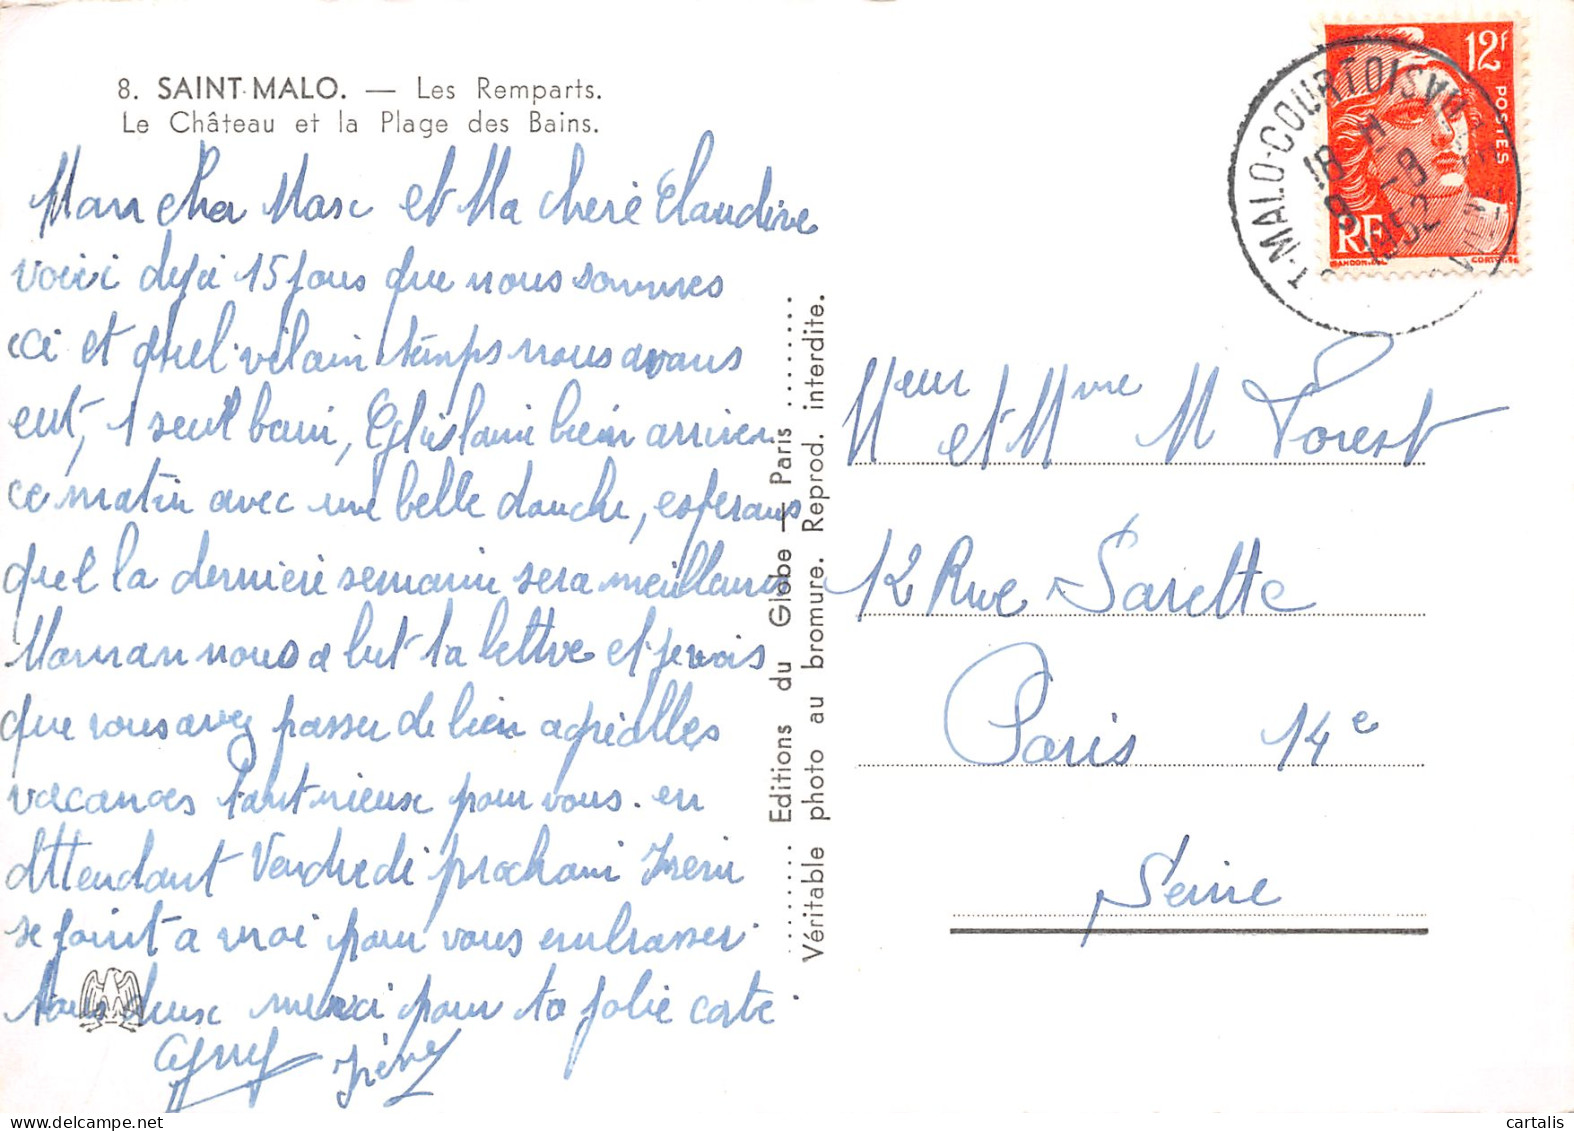 8. SAINT-MALO. — Les Remparts.
Le Château et la Plage des Bains.
Mon cher Marc et Ma cheré Claudine
voici deja 15 jours que nous sommes
ici et quel vilain temps nous avons
eut, 1 seul bain, Ghislaine bien arriver
ce matin avec une belle douche, esperons
quel la derniere semaine sera meilleure
Maman nous a lut ta lettre et je vois
que vous avez passer de bien agréables
vacances tant mieux pour vous. en
attendant Vendredi prochain Irène
se joint a moi pour vous embrasser.
tous deux merci pour ta jolie carte.
Irène
Editions du Globe — Paris
Véritable photo au bromure. Reprod. interdite.
12F
POSTES
RF
GANDON.DEL
CORTOT.SC
ST-MALO-COURTOISVILLE
18 H
8 -9
1952
Meur et Mme M Forest
12 Rue Sarette
Paris 14e
Seine
cartalis
delcampe.net